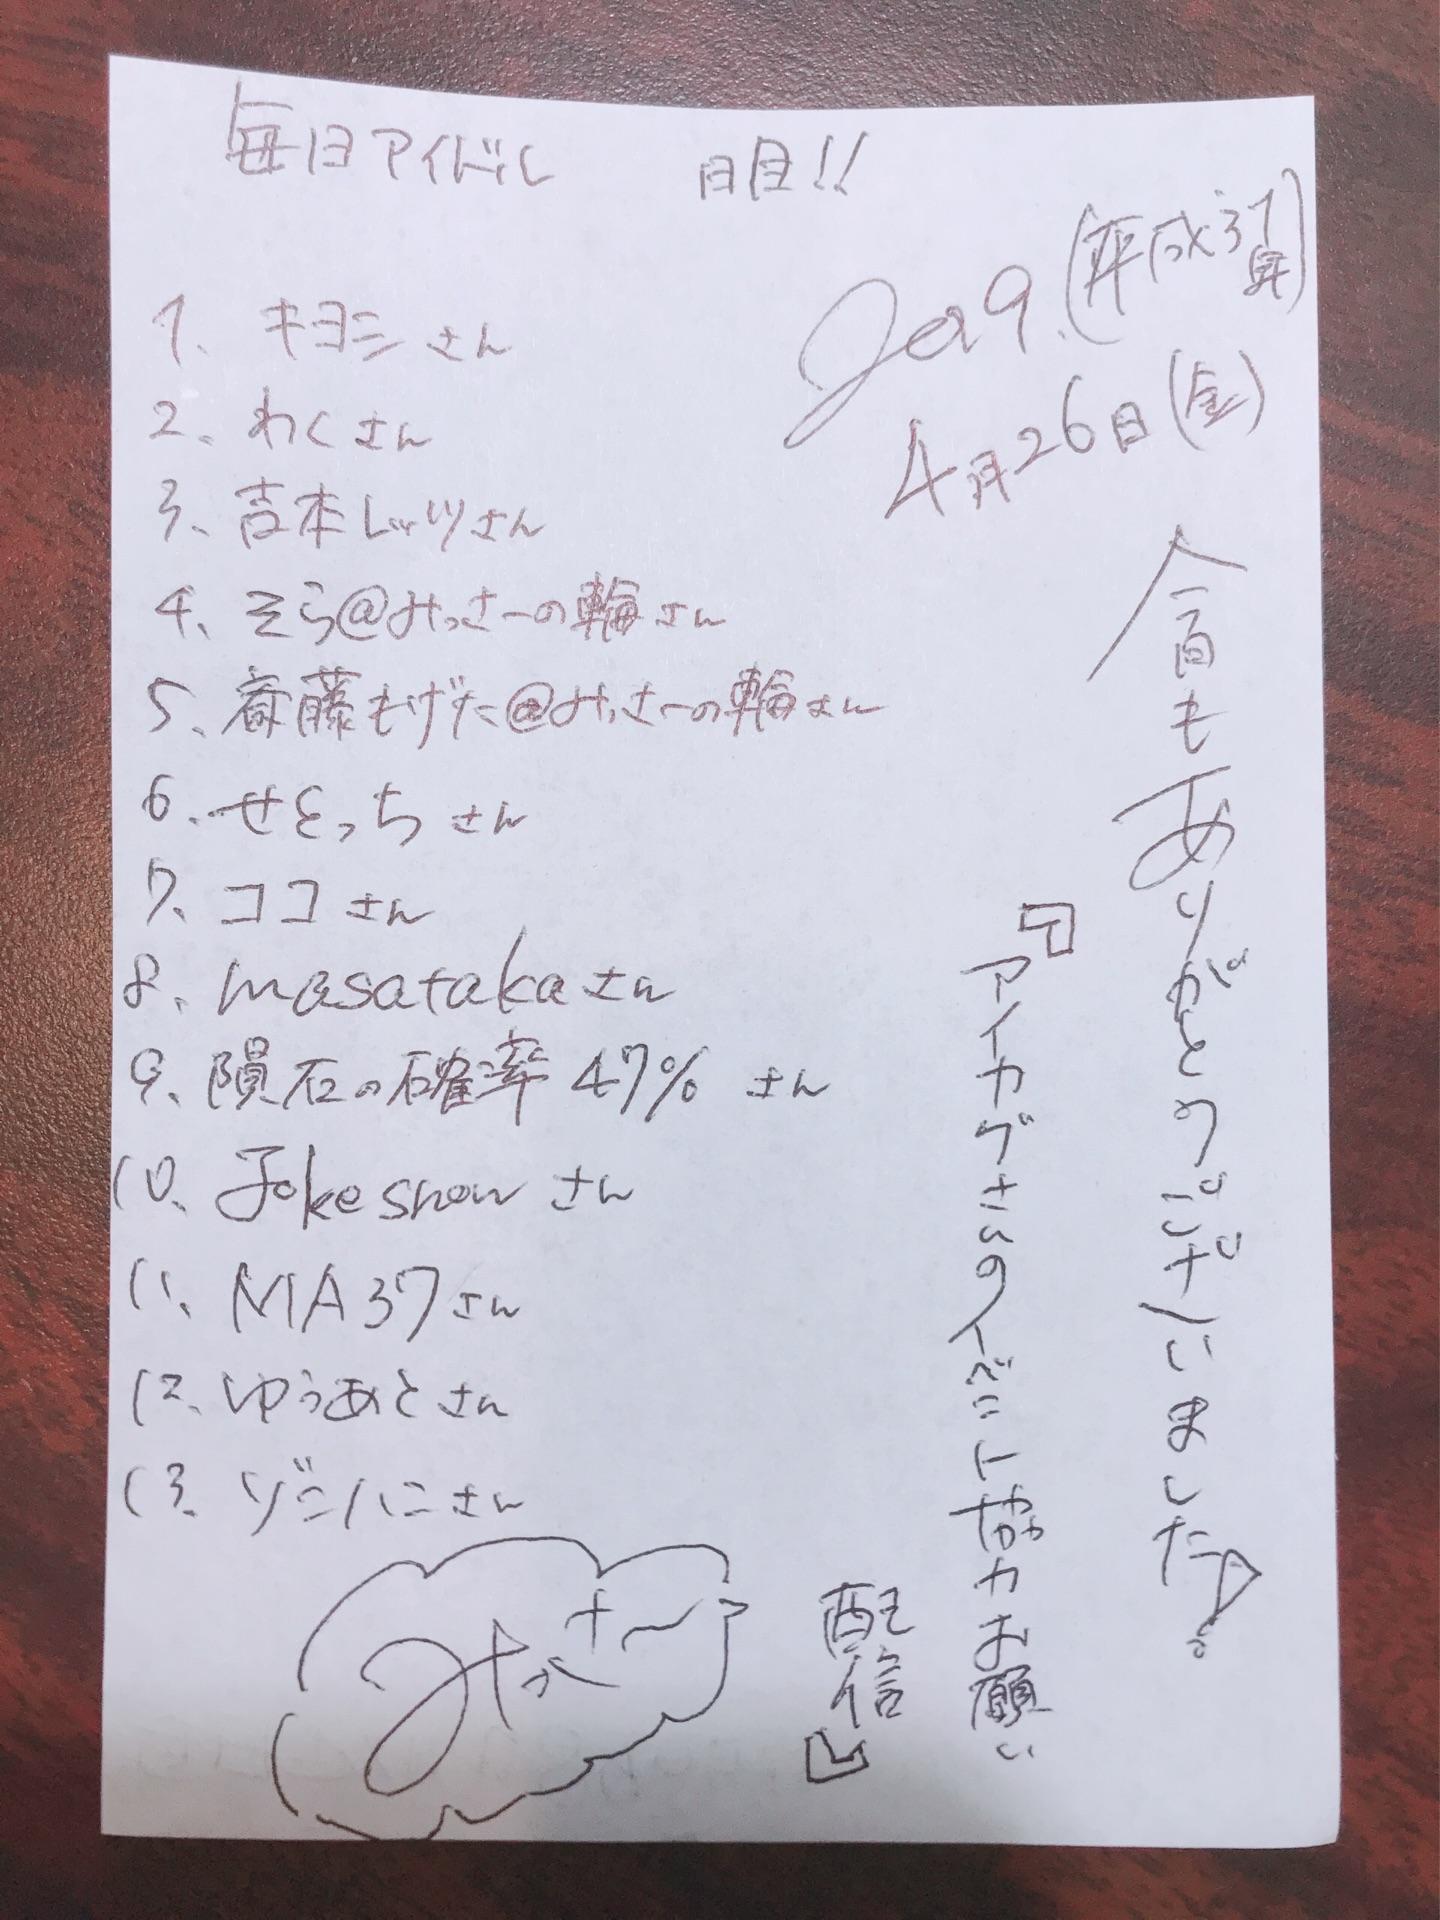 毎日アイドル　　　日目!!
2019.(平成31年)
4月26日(金)
1. キヨシさん
2. わくさん
3. 吉本レッツさん
4. そら@みっさーの輪さん
5. 斎藤もげた@みっさーの輪さん
6. せとっちさん
7. ココさん
8. masatakaさん
9. 隕石の確率47%さん
10. Jokeshowさん
11. MA37さん
12. ゆうあとさん
13. ゾニハニさん
今回もありがとうございました!
『アイカグさんのイベント協力お願い
配信』
みっさー